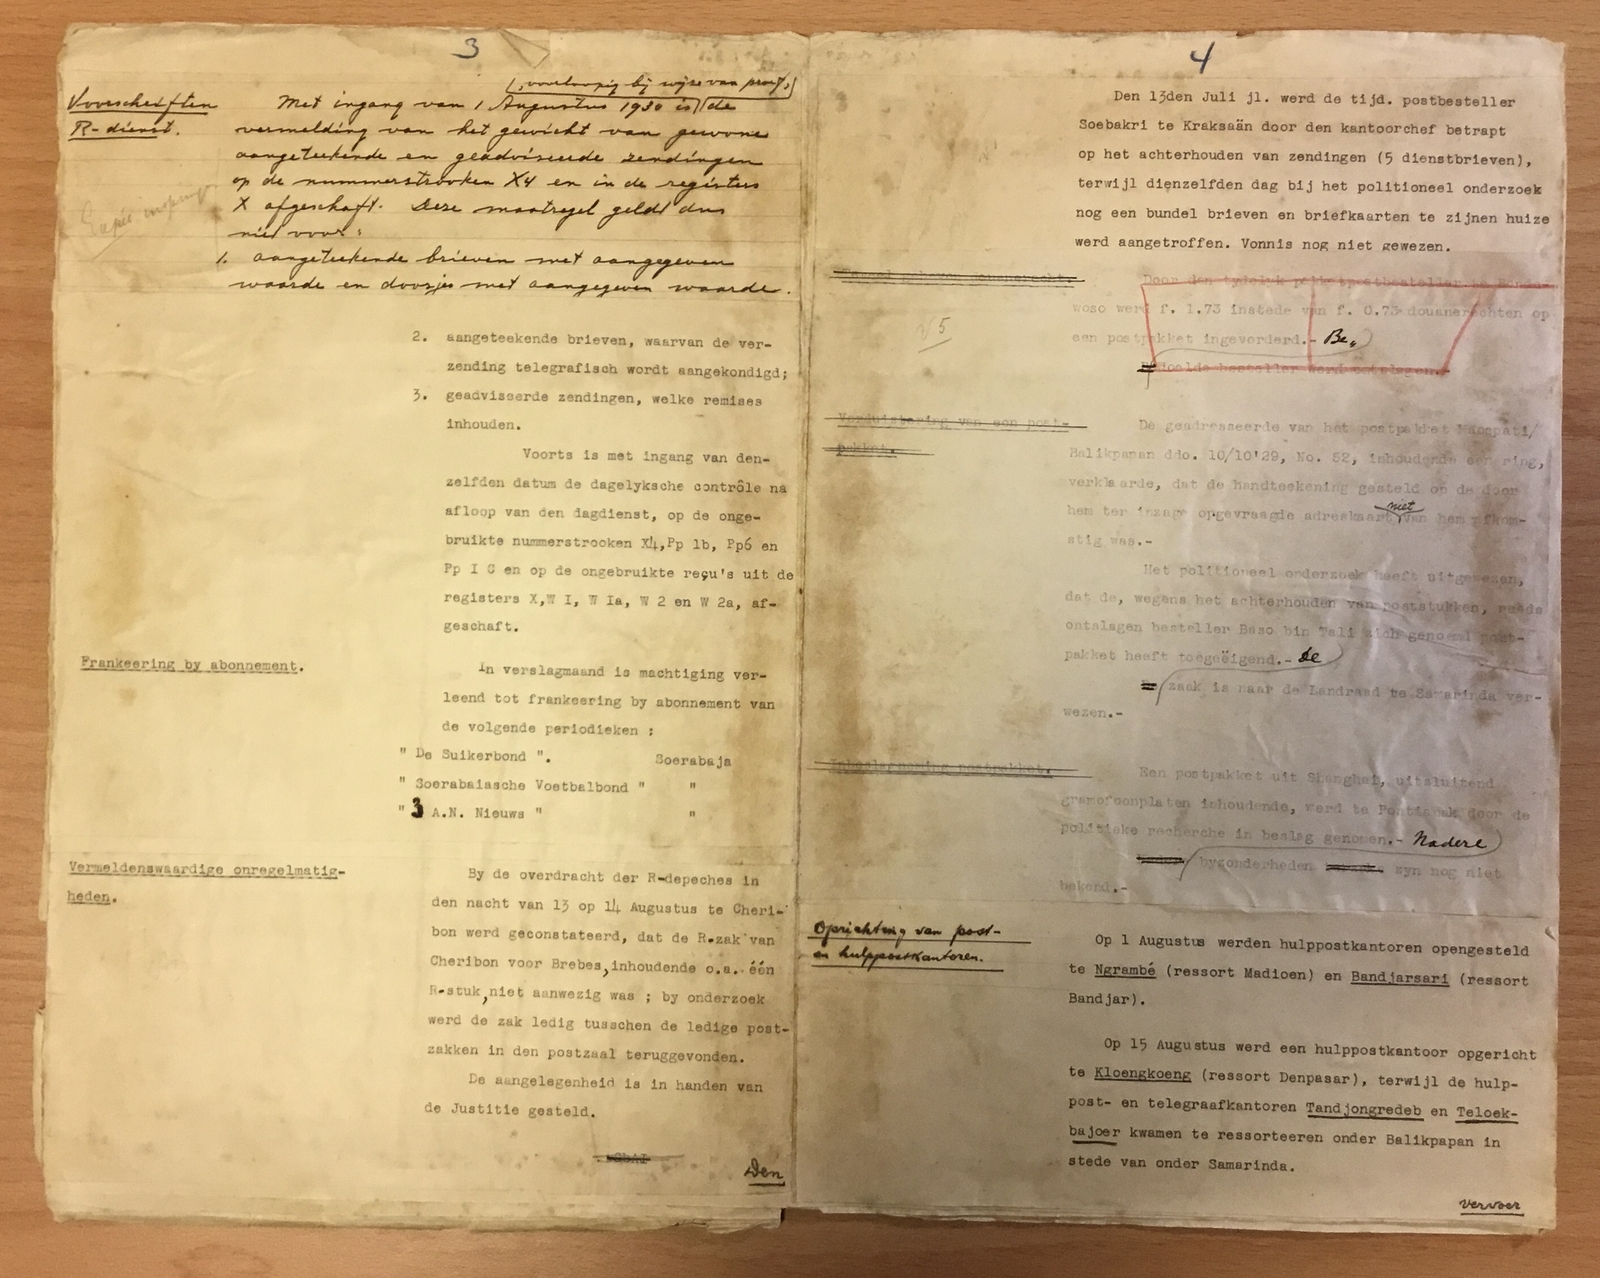 3
Voorschriften
R-dienst.
(, voorloopig bij wijze van proef,)
Met ingang van 1 Augustus 1930 is de
vermelding van het gewicht van gewone
aangeteekende en geadviseerde zendingen
op de nummerstrooken X4 en in de registers
X afgeschaft. Deze maatregel geldt dus
niet voor:
1. aangeteekende brieven met aangegeven
waarde en doosjes met aangegeven waarde.
2. aangeteekende brieven, waarvan de ver-
zending telegrafisch wordt aangekondigd;
3. geadviseerde zendingen, welke remises
inhouden.
Voorts is met ingang van den-
zelfden datum de dagelyksche contrôle na
afloop van den dagdienst, op de onge-
bruikte nummerstrooken X4,Pp 1b, Pp6 en
Pp I C en op de ongebruikte reçu's uit de
registers X,W I, W Ia, W 2 en W 2a, af-
geschaft.
Frankeering by abonnement.
In verslagmaand is machtiging ver-
leend tot frankeering by abonnement van
de volgende periodieken ;
" De Suikerbond ". Soerabaja
" Soerabaiasche Voetbalbond " "
" 3 A.N. Nieuws " "
Vermeldenswaardige onregelmatig-
heden.
By de overdracht der R-depeches in
den nacht van 13 op 14 Augustus te Cheri-
bon werd geconstateerd, dat de R.zak van
Cheribon voor Brebes,inhoudende o.a. één
R-stuk,niet aanwezig was ; by onderzoek
werd de zak ledig tusschen de ledige post-
zakken in den postzaal teruggevonden.
De aangelegenheid is in handen van
de Justitie gesteld.
Den
4
Den 13den Juli jl. werd de tijd. postbesteller
Soebakri te Kraksaän door den kantoorchef betrapt
op het achterhouden van zendingen (5 dienstbrieven),
terwijl dienzelfden dag bij het politioneel onderzoek
nog een bundel brieven en briefkaarten te zijnen huize
werd aangetroffen. Vonnis nog niet gewezen.
Door den tydelyk postbesteller te
woso werd f. 1.73 instede van f. 0.73 douanerechten op
een postpakket ingevorderd.- Be„
doelde besteller werd ontslagen.
V5
Verduistering van een post-
pakket.
De geadresseerde van het postpakket
Balikpapan ddo. 10/10'29, No. 52, inhoudende een ring,
verklaarde, dat de handteekening gesteld op de door
hem ter inzage opgevraagde adreskaart niet van hem afkom-
stig was.-
Het politioneel onderzoek heeft uitgewezen,
dat de, wegens het achterhouden van poststukken, reeds
ontslagen besteller Baso bin Tali zich genoemd post-
pakket heeft toegeëigend.- De
zaak is naar de Landraad te Samarinda ver-
wezen.-
Inbeslagneming postpakket.
Een postpakket uit Shanghai, uitsluitend
gramofoonplaten inhoudende, werd te Pontianak door de
politieke recherche in beslag genomen.- Nadere
byzonderheden zyn nog niet
bekend.-
Oprichting van post-
en hulppostkantoren.
Op 1 Augustus werden hulppostkantoren opengesteld
te Ngrambé (ressort Madioen) en Bandjarsari (ressort
Bandjar).
Op 15 Augustus werd een hulppostkantoor opgericht
te Kloengkoeng (ressort Denpasar), terwijl de hulp-
post- en telegraafkantoren Tandjongredeb en Teloek-
bajoer kwamen te ressorteeren onder Balikpapan in
stede van onder Samarinda.
vervoer